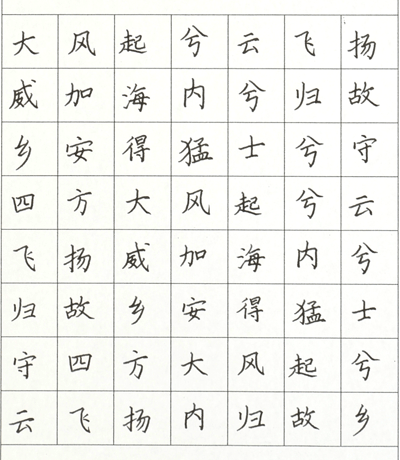 大风起兮云飞扬
威加海内兮归故
乡安得猛士兮守
四方大风起兮云
飞扬威加海内兮
归故乡安得猛士
守四方大风起兮
云飞扬内归故乡